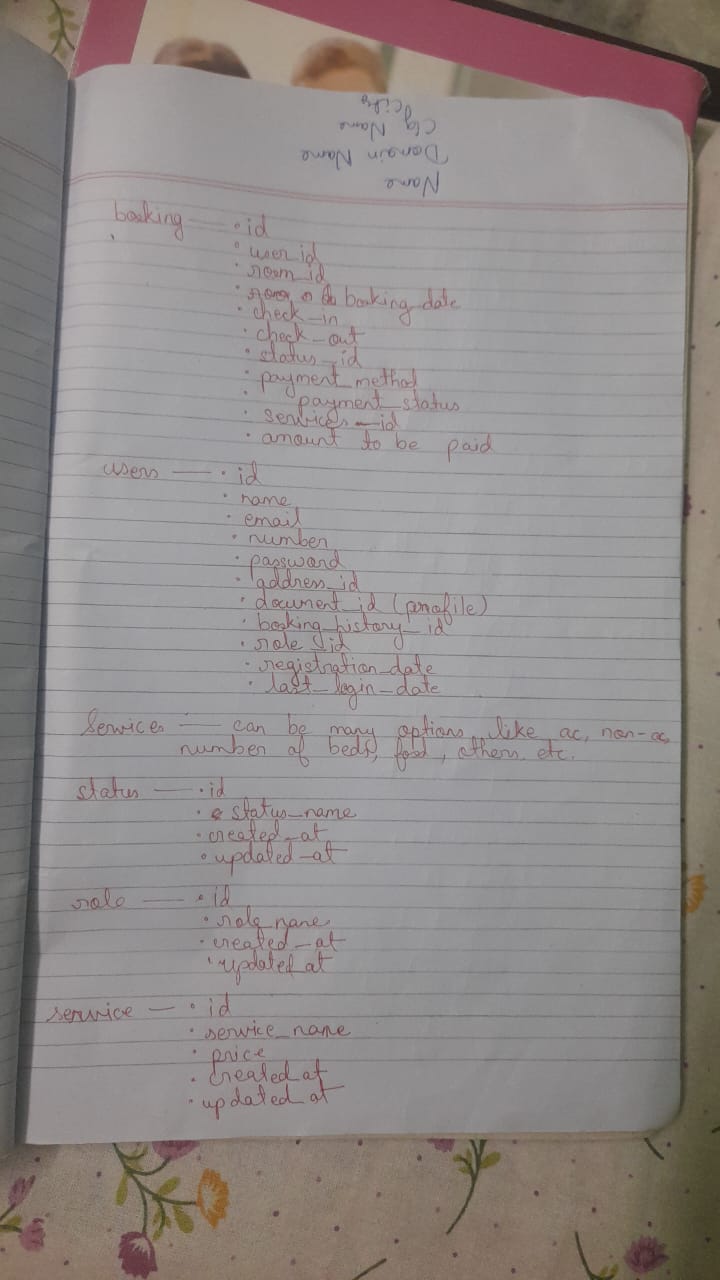 Name
Domain Name
Clg Name
booking — • id
• user_id
• room_id
• booking date
• check_in
• check_out
• status_id
• payment_method
• payment_status
• services_id
• amount to be paid
users — • id
• name
• email
• number
• password
• address_id
• document_id (profile)
• booking_history_id
• role_id
• registration_date
• last_login_date
Services — can be many options like ac, non-ac,
number of beds, food, others, etc.
status — • id
• status_name
• created_at
• updated_at
role — • id
• role_name
• created_at
• updated_at
service — • id
• service_name
• price
• created_at
• updated_at